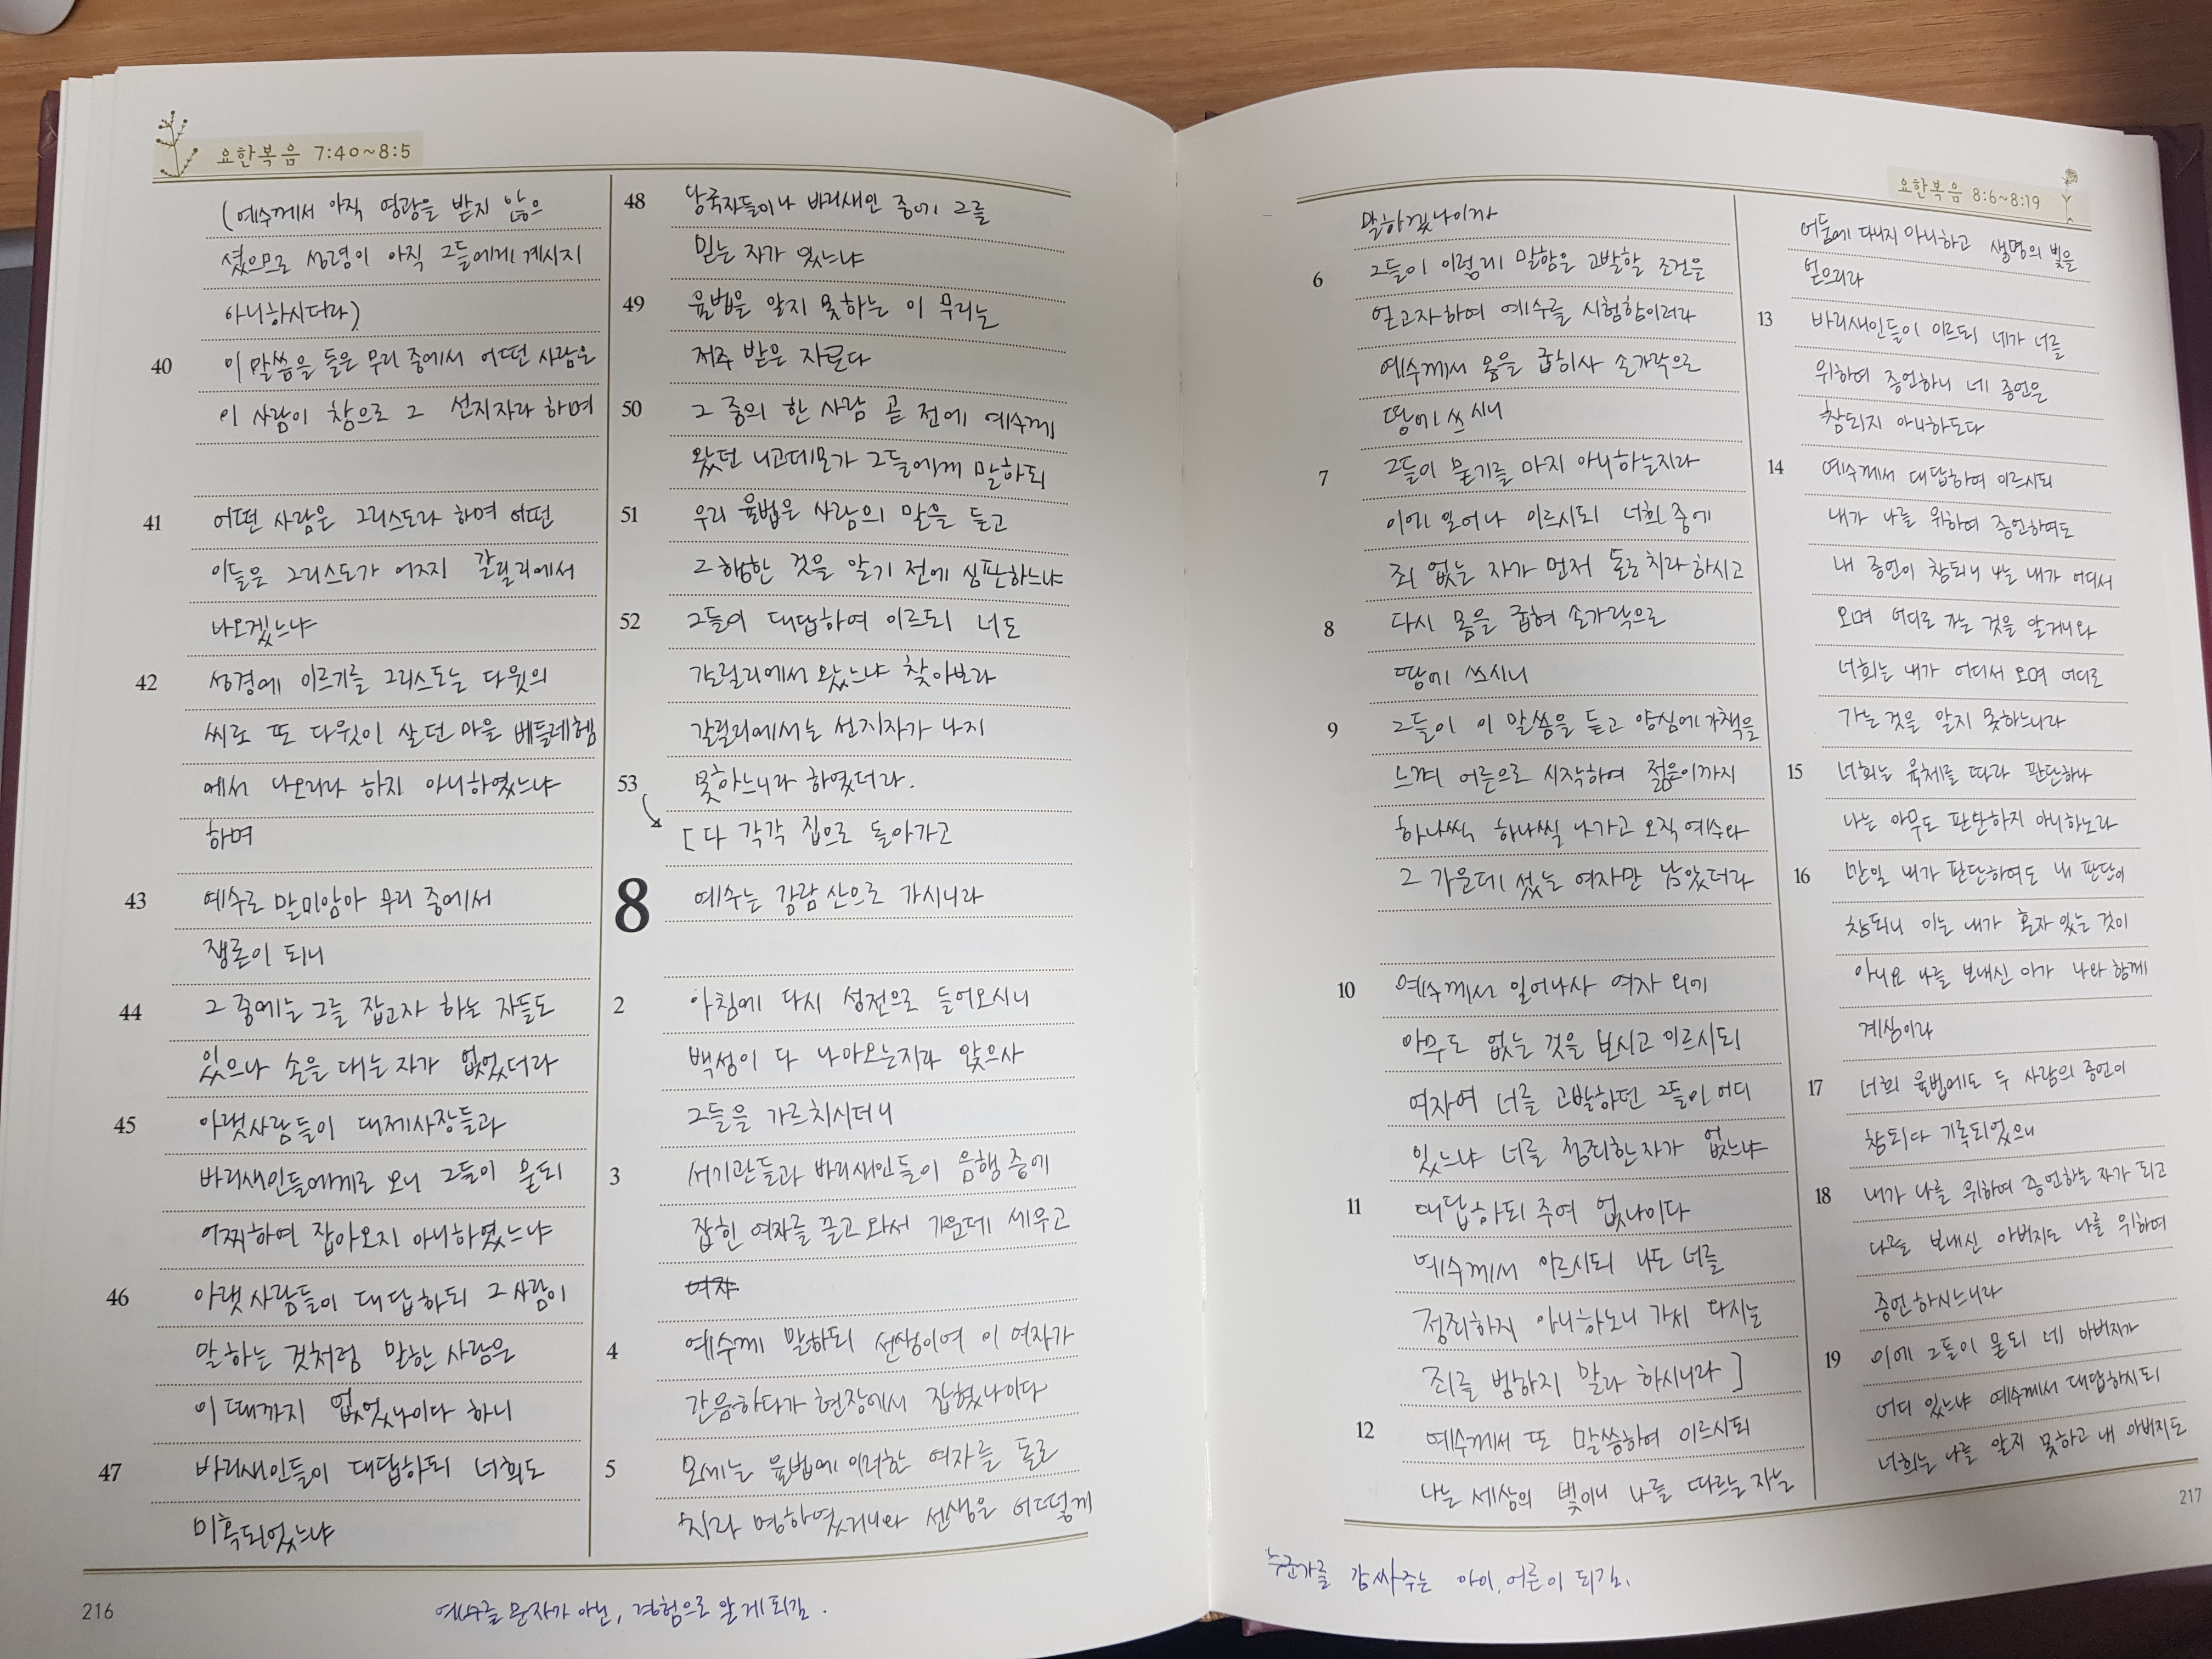 요한복음 7:40~8:5
(예수께서 아직 영광을 받지 않으
셨으므로 성령이 아직 그들에게 계시지
아니하시더라)
40 이 말씀을 들은 무리 중에서 어떤 사람은
이 사람이 참으로 그 선지자라 하며
41 어떤 사람은 그리스도라 하며 어떤
이들은 그리스도가 어찌 갈릴리에서
나오겠느냐
42 성경에 이르기를 그리스도는 다윗의
씨로 또 다윗이 살던 마을 베들레헴
에서 나오리라 하지 아니하였느냐
하며
43 예수로 말미암아 무리 중에서
쟁론이 되니
44 그 중에는 그를 잡고자 하는 자들도
있으나 손을 대는 자가 없었더라
45 아랫사람들이 대제사장들과
바리새인들에게로 오니 그들이 묻되
어찌하여 잡아오지 아니하였느냐
46 아랫사람들이 대답하되 그 사람이
말하는 것처럼 말한 사람은
이 때까지 없었나이다 하니
47 바리새인들이 대답하되 너희도
미혹되었느냐
48 당국자들이나 바리새인 중에 그를
믿는 자가 있느냐
49 율법을 알지 못하는 이 무리는
저주 받은 자로다
50 그 중의 한 사람 곧 전에 예수께
왔던 니고데모가 그들에게 말하되
51 우리 율법은 사람의 말을 듣고
그 행한 것을 알기 전에 심판하느냐
52 그들이 대답하여 이르되 너도
갈릴리에서 왔느냐 찾아보라
갈릴리에서는 선지자가 나지
53 못하느니라 하였더라.
[다 각각 집으로 돌아가고
8 예수는 감람 산으로 가시니라
2 아침에 다시 성전으로 들어오시니
백성이 다 나아오는지라 앉으사
그들을 가르치시더니
3 서기관들과 바리새인들이 음행 중에
잡힌 여자를 끌고 와서 가운데 세우고
여자
4 예수께 말하되 선생이여 이 여자가
간음하다가 현장에서 잡혔나이다
5 모세는 율법에 이러한 여자를 돌로
치라 명하였거니와 선생은 어떻게
216
예수를 문자가 아닌, 경험으로 알게 되길.
요한복음 8:6~8:19
말하겠나이까
6 그들이 이렇게 말함은 고발할 조건을
얻고자하여 예수를 시험함이러라
예수께서 몸을 굽히사 손가락으로
땅에 쓰시니
7 그들이 묻기를 마지 아니하는지라
이에 일어나 이르시되 너희 중에
죄 없는 자가 먼저 돌로 치라 하시고
8 다시 몸을 굽혀 손가락으로
땅에 쓰시니
9 그들이 이 말씀을 듣고 양심에 가책을
느껴 어른으로 시작하여 젊은이까지
하나씩 하나씩 나가고 오직 예수와
그 가운데 섰는 여자만 남았더라
10 예수께서 일어나사 여자 외에
아무도 없는 것을 보시고 이르시되
여자여 너를 고발하던 그들이 어디
있느냐 너를 정죄한 자가 없느냐
11 대답하되 주여 없나이다
예수께서 이르시되 나도 너를
정죄하지 아니하노니 가서 다시는
죄를 범하지 말라 하시니라]
12 예수께서 또 말씀하여 이르시되
나는 세상의 빛이니 나를 따르는 자는
어둠에 다니지 아니하고 생명의 빛을
얻으리라
13 바리새인들이 이르되 네가 너를
위하여 증언하니 네 증언은
참되지 아니하도다
14 예수께서 대답하여 이르시되
내가 나를 위하여 증언하여도
내 증언이 참되니 나는 내가 어디서
오며 어디로 가는 것을 알거니와
너희는 내가 어디서 오며 어디로
가는 것을 알지 못하느니라
15 너희는 육체를 따라 판단하나
나는 아무도 판단하지 아니하노라
16 만일 내가 판단하여도 내 판단이
참되니 이는 내가 혼자 있는 것이
아니요 나를 보내신 이가 나와 함께
계심이라
17 너희 율법에도 두 사람의 증언이
참되다 기록되었으니
18 내가 나를 위하여 증언하는 자가 되고
나를 보내신 아버지도 나를 위하여
증언하시느니라
19 이에 그들이 묻되 네 아버지가
어디 있느냐 예수께서 대답하시되
너희는 나를 알지 못하고 내 아버지도
217
누군가를 감싸주는 아이, 어른이 되길.